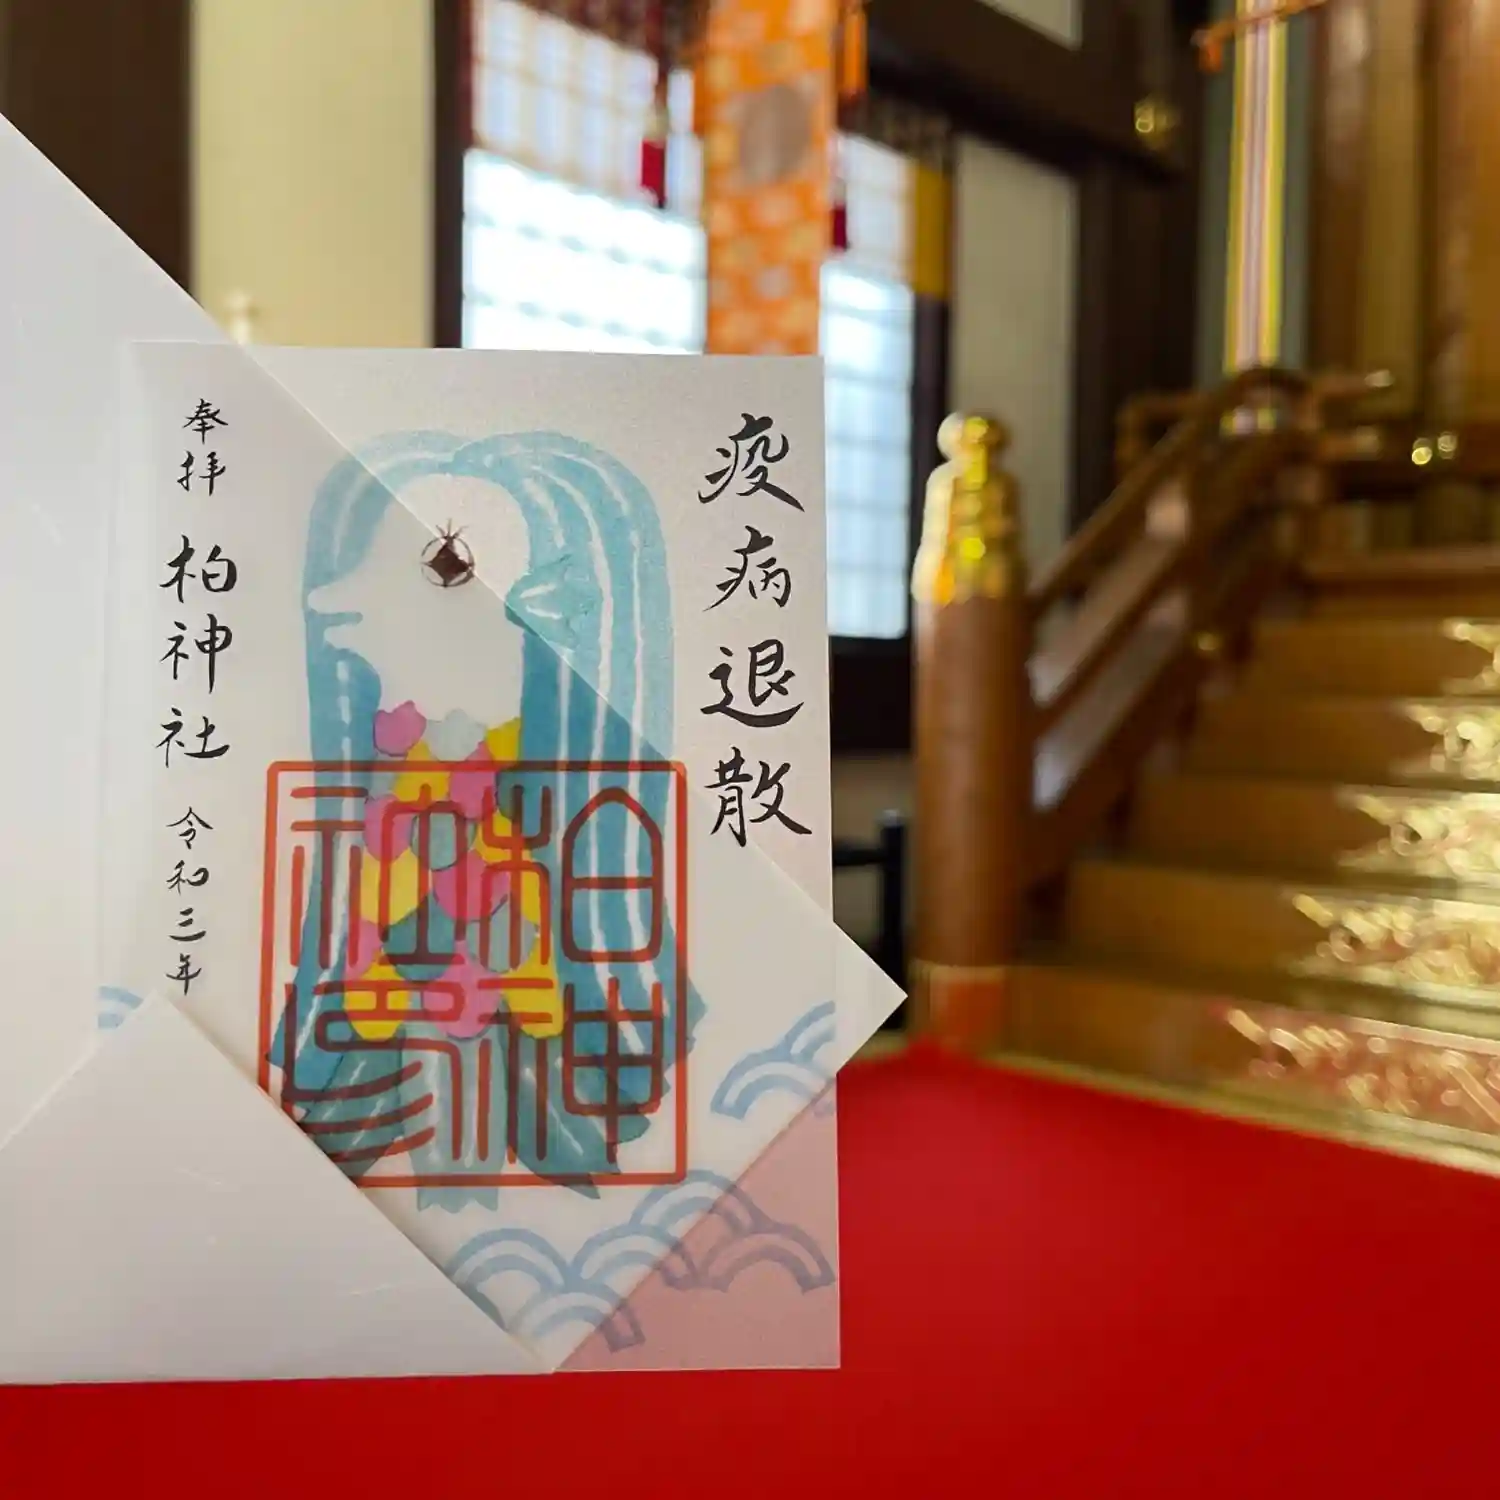 疫病退散
奉拝 柏神社 令和三年
柏神
社印